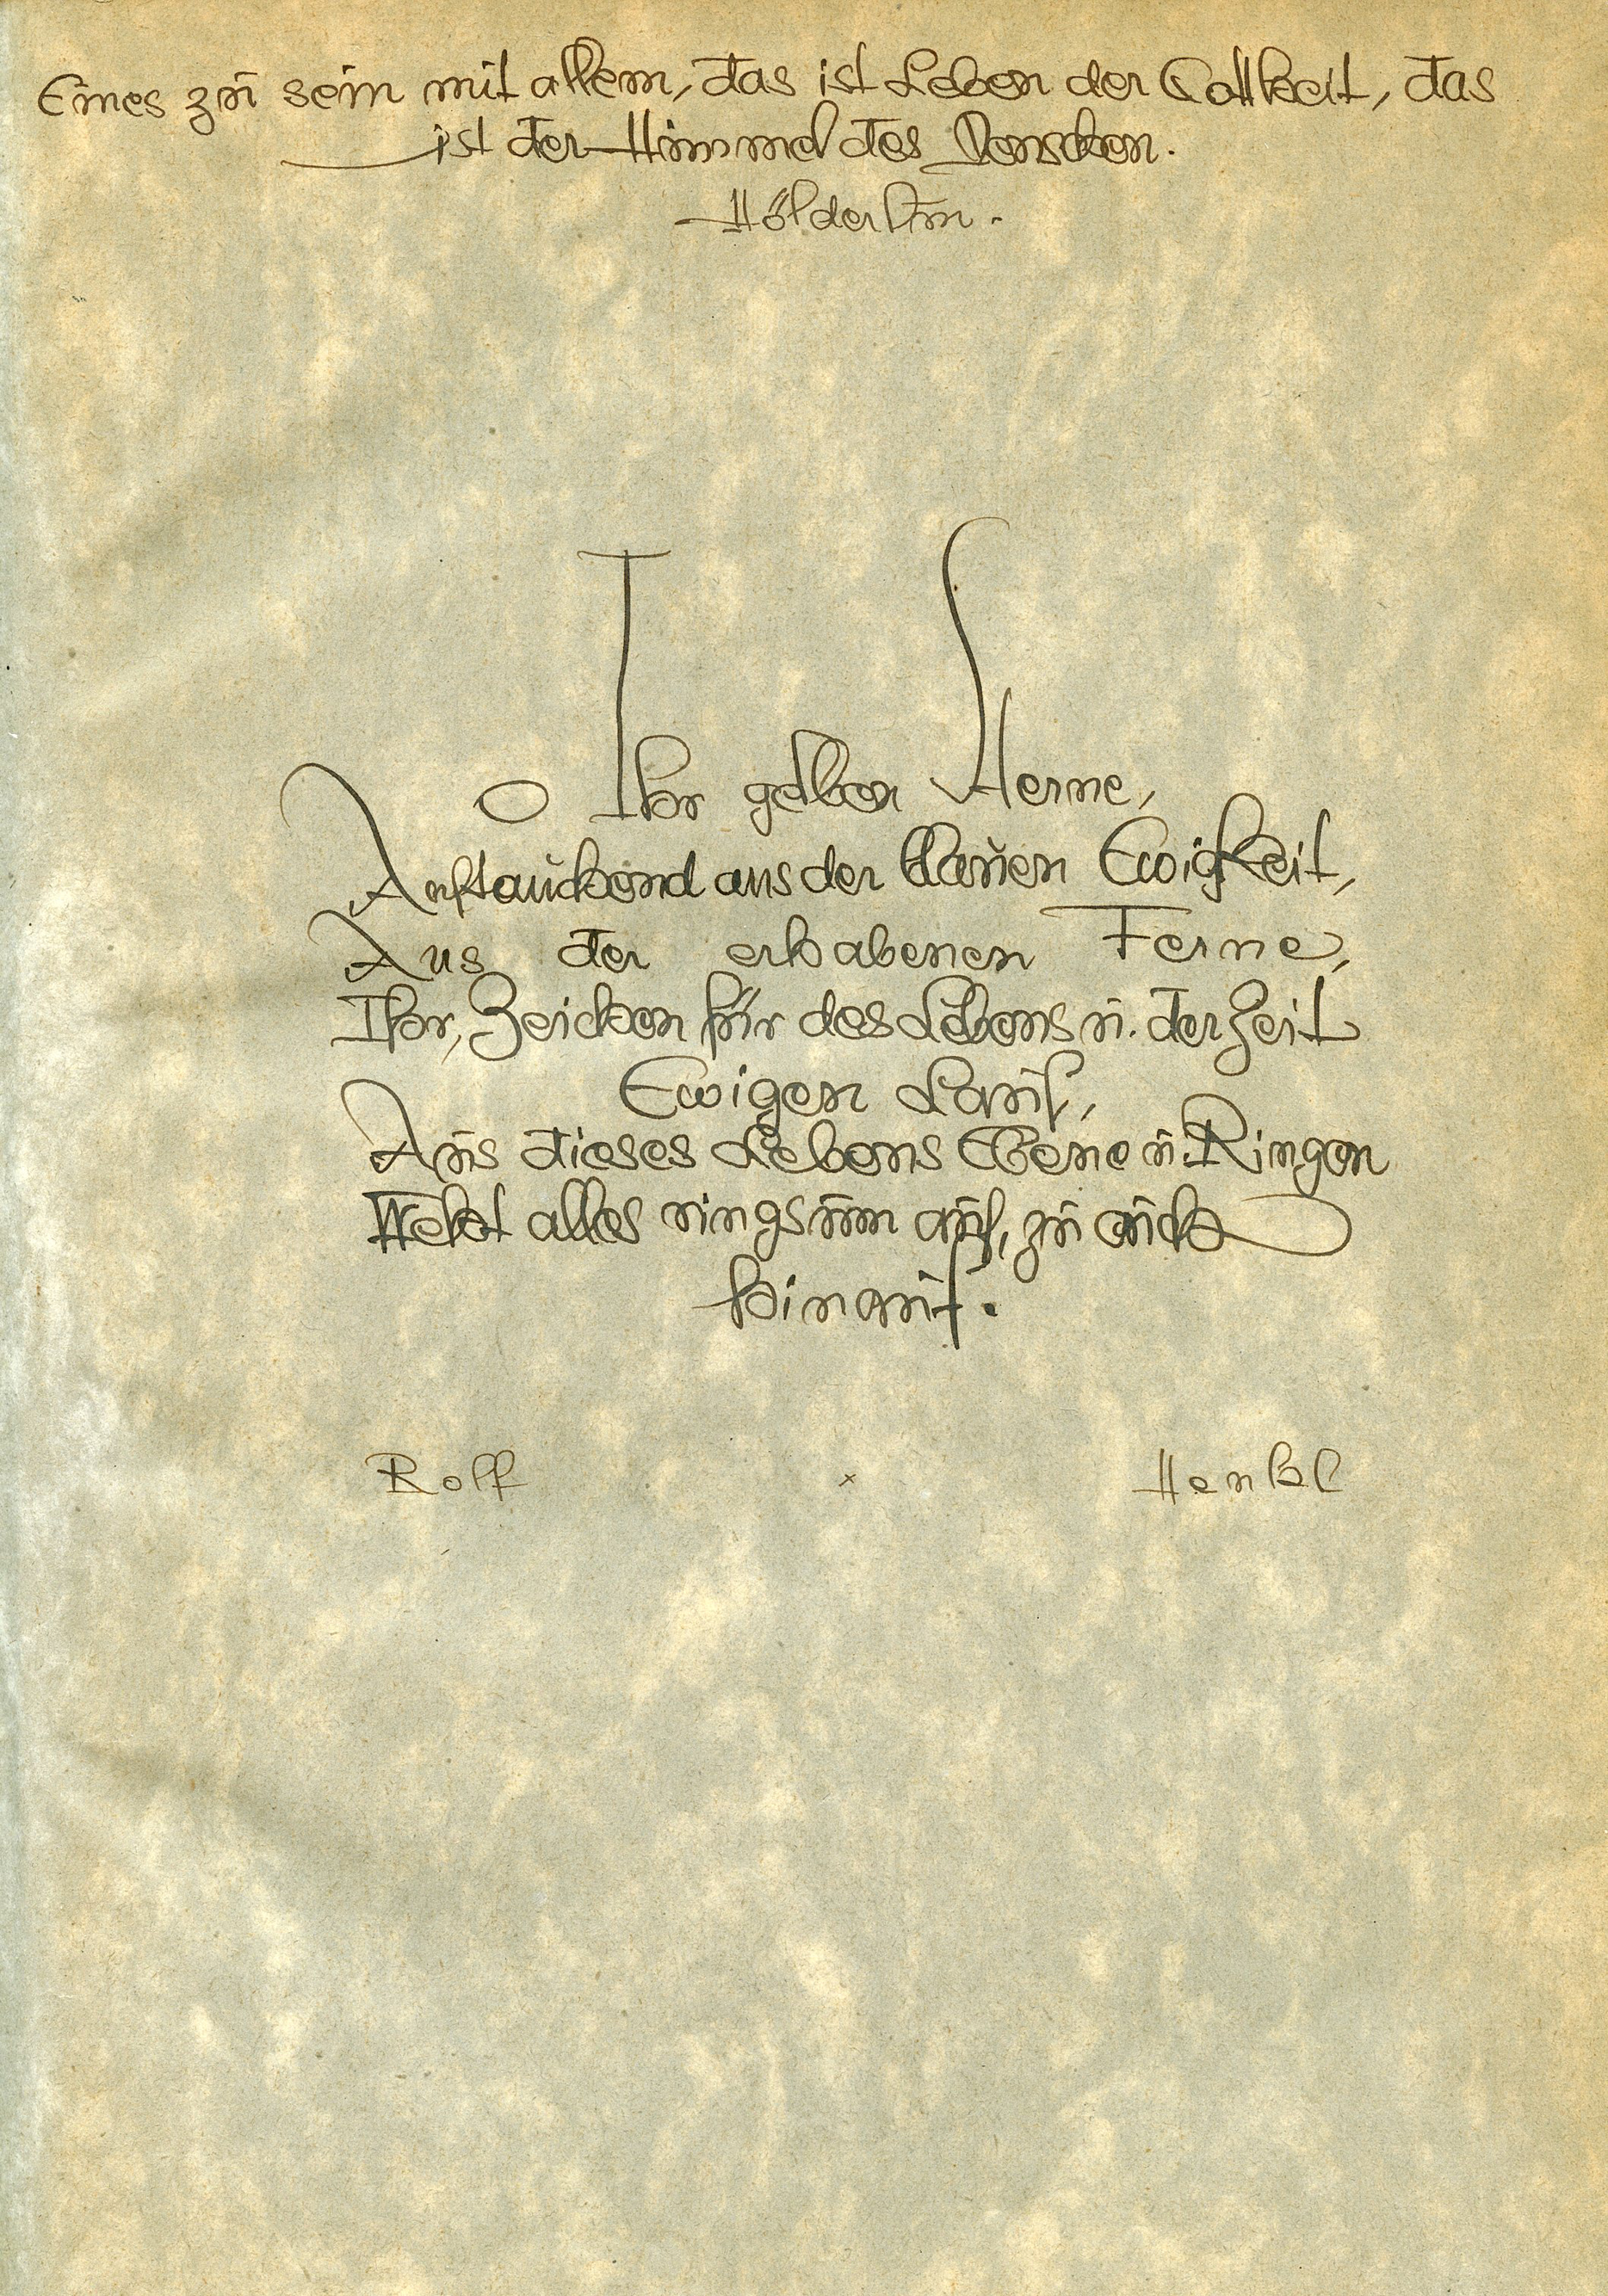 Eines zu sein mit allem, das ist Leben der Gottheit, das
ist der Himmel des Menschen.
Hölderlin.
O Ihr gelben Sterne,
Auftauchend aus der blauen Ewigkeit,
Aus der erhabenen Ferne,
Ihr, Zeichen für des Lebens u. der Zeit
Ewigen Lauf,
Aus dieses Lebens Ebene u. Ringen
Weht alles ringsum auf, zu euch
hinauf.
Rolf x Henkl